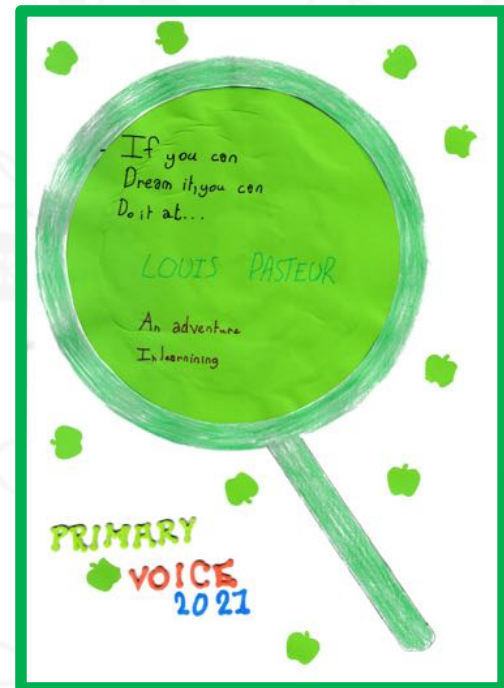 - If you can
Dream it, you can
Do it at...
LOUIS PASTEUR
An adventure
In learnining
PRIMARY
VOICE
2021